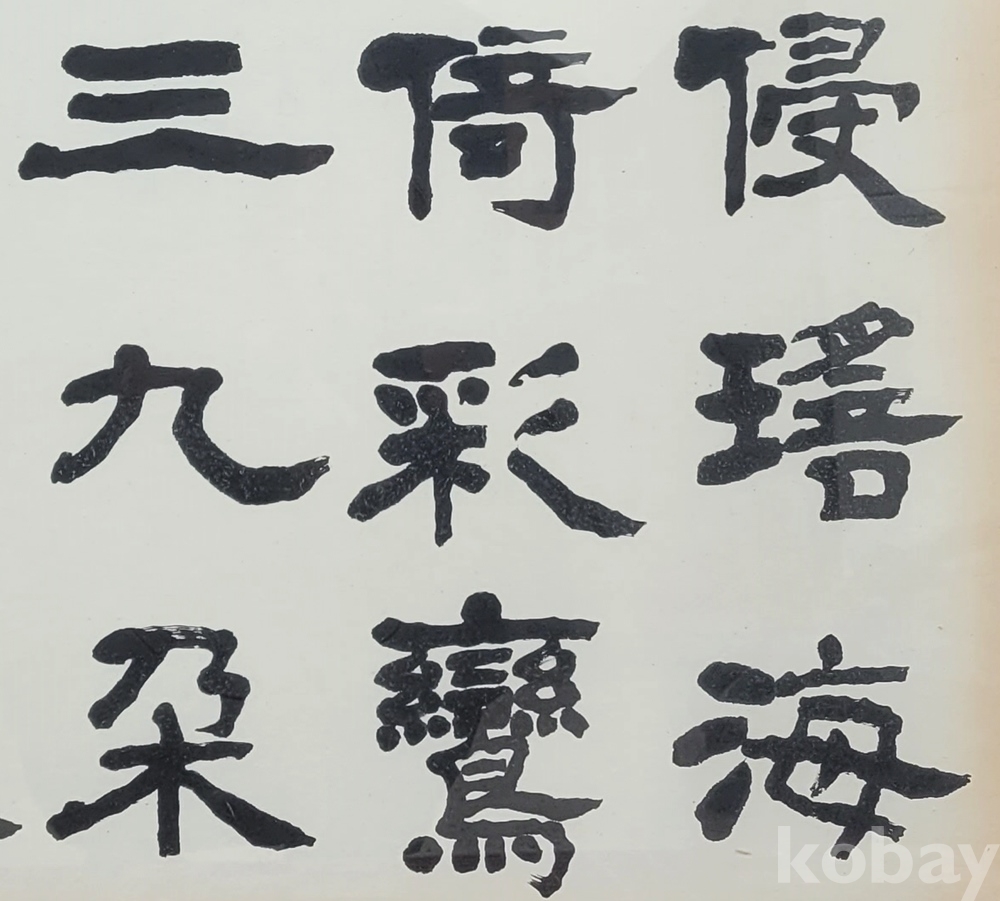 侵瑤海
倚彩鸞
三九朶
kobay